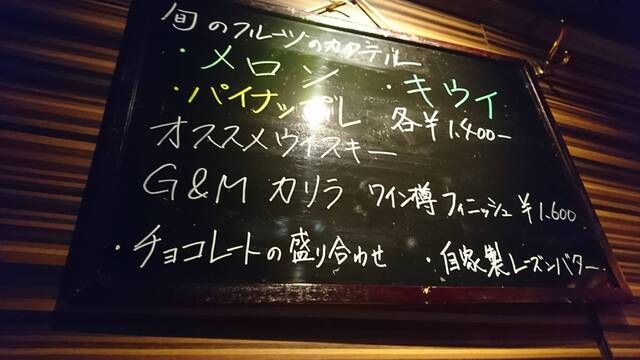 旬のフルーツのカクテル
・メロン ・キウイ
・パイナップル 各¥1.400-
オススメウイスキー
G&M カリラ ワイン樽フィニッシュ ¥1.600
・チョコレートの盛り合わせ ・自家製レーズンバター